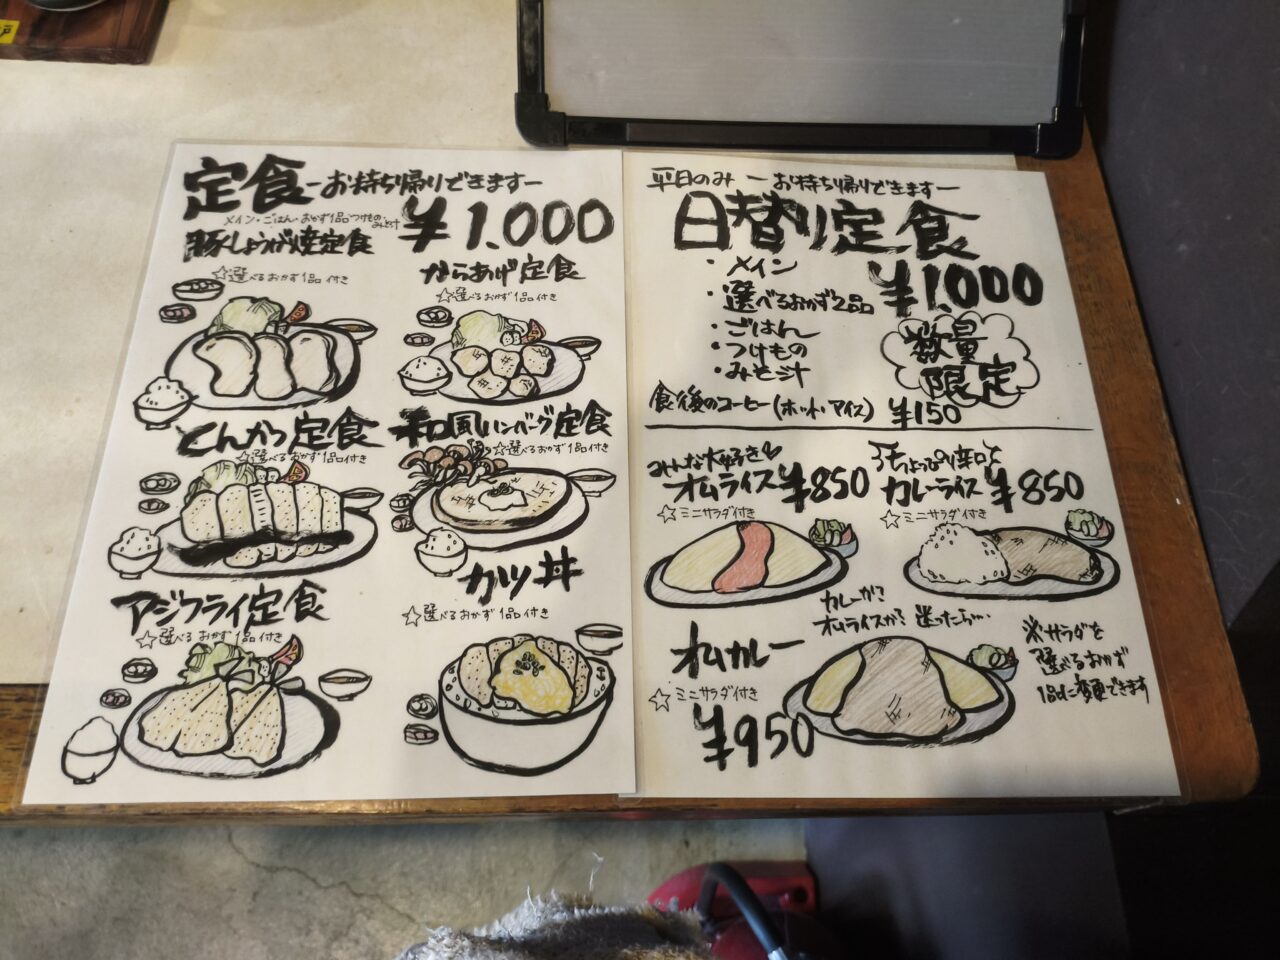 定食 ーお持ち帰りできますー
メイン・ごはん・おかず1品・つけもの・みそ汁
¥1.000
豚しょうが焼定食
☆選べるおかず1品付き
からあげ定食
☆選べるおかず1品付き
とんかつ定食
☆選べるおかず1品付き
和風ハンバーグ定食
☆選べるおかず1品付き
アジフライ定食
☆選べるおかず1品付き
カツ丼
☆選べるおかず1品付き
平日のみ ーお持ち帰りできますー
日替り定食
¥1.000
・メイン
・選べるおかず2品
・ごはん
・つけもの
・みそ汁
数量
限定
食後のコーヒー(ホット・アイス) ¥150
みんな大好き♡
オムライス ¥850
☆ミニサラダ付き
ちょっぴり辛口
カレーライス ¥850
☆ミニサラダ付き
カレーか?
オムライスか?迷ったら…
オムカレー
☆ミニサラダ付き
¥950
※サラダを
選べるおかず
1品に変更できます